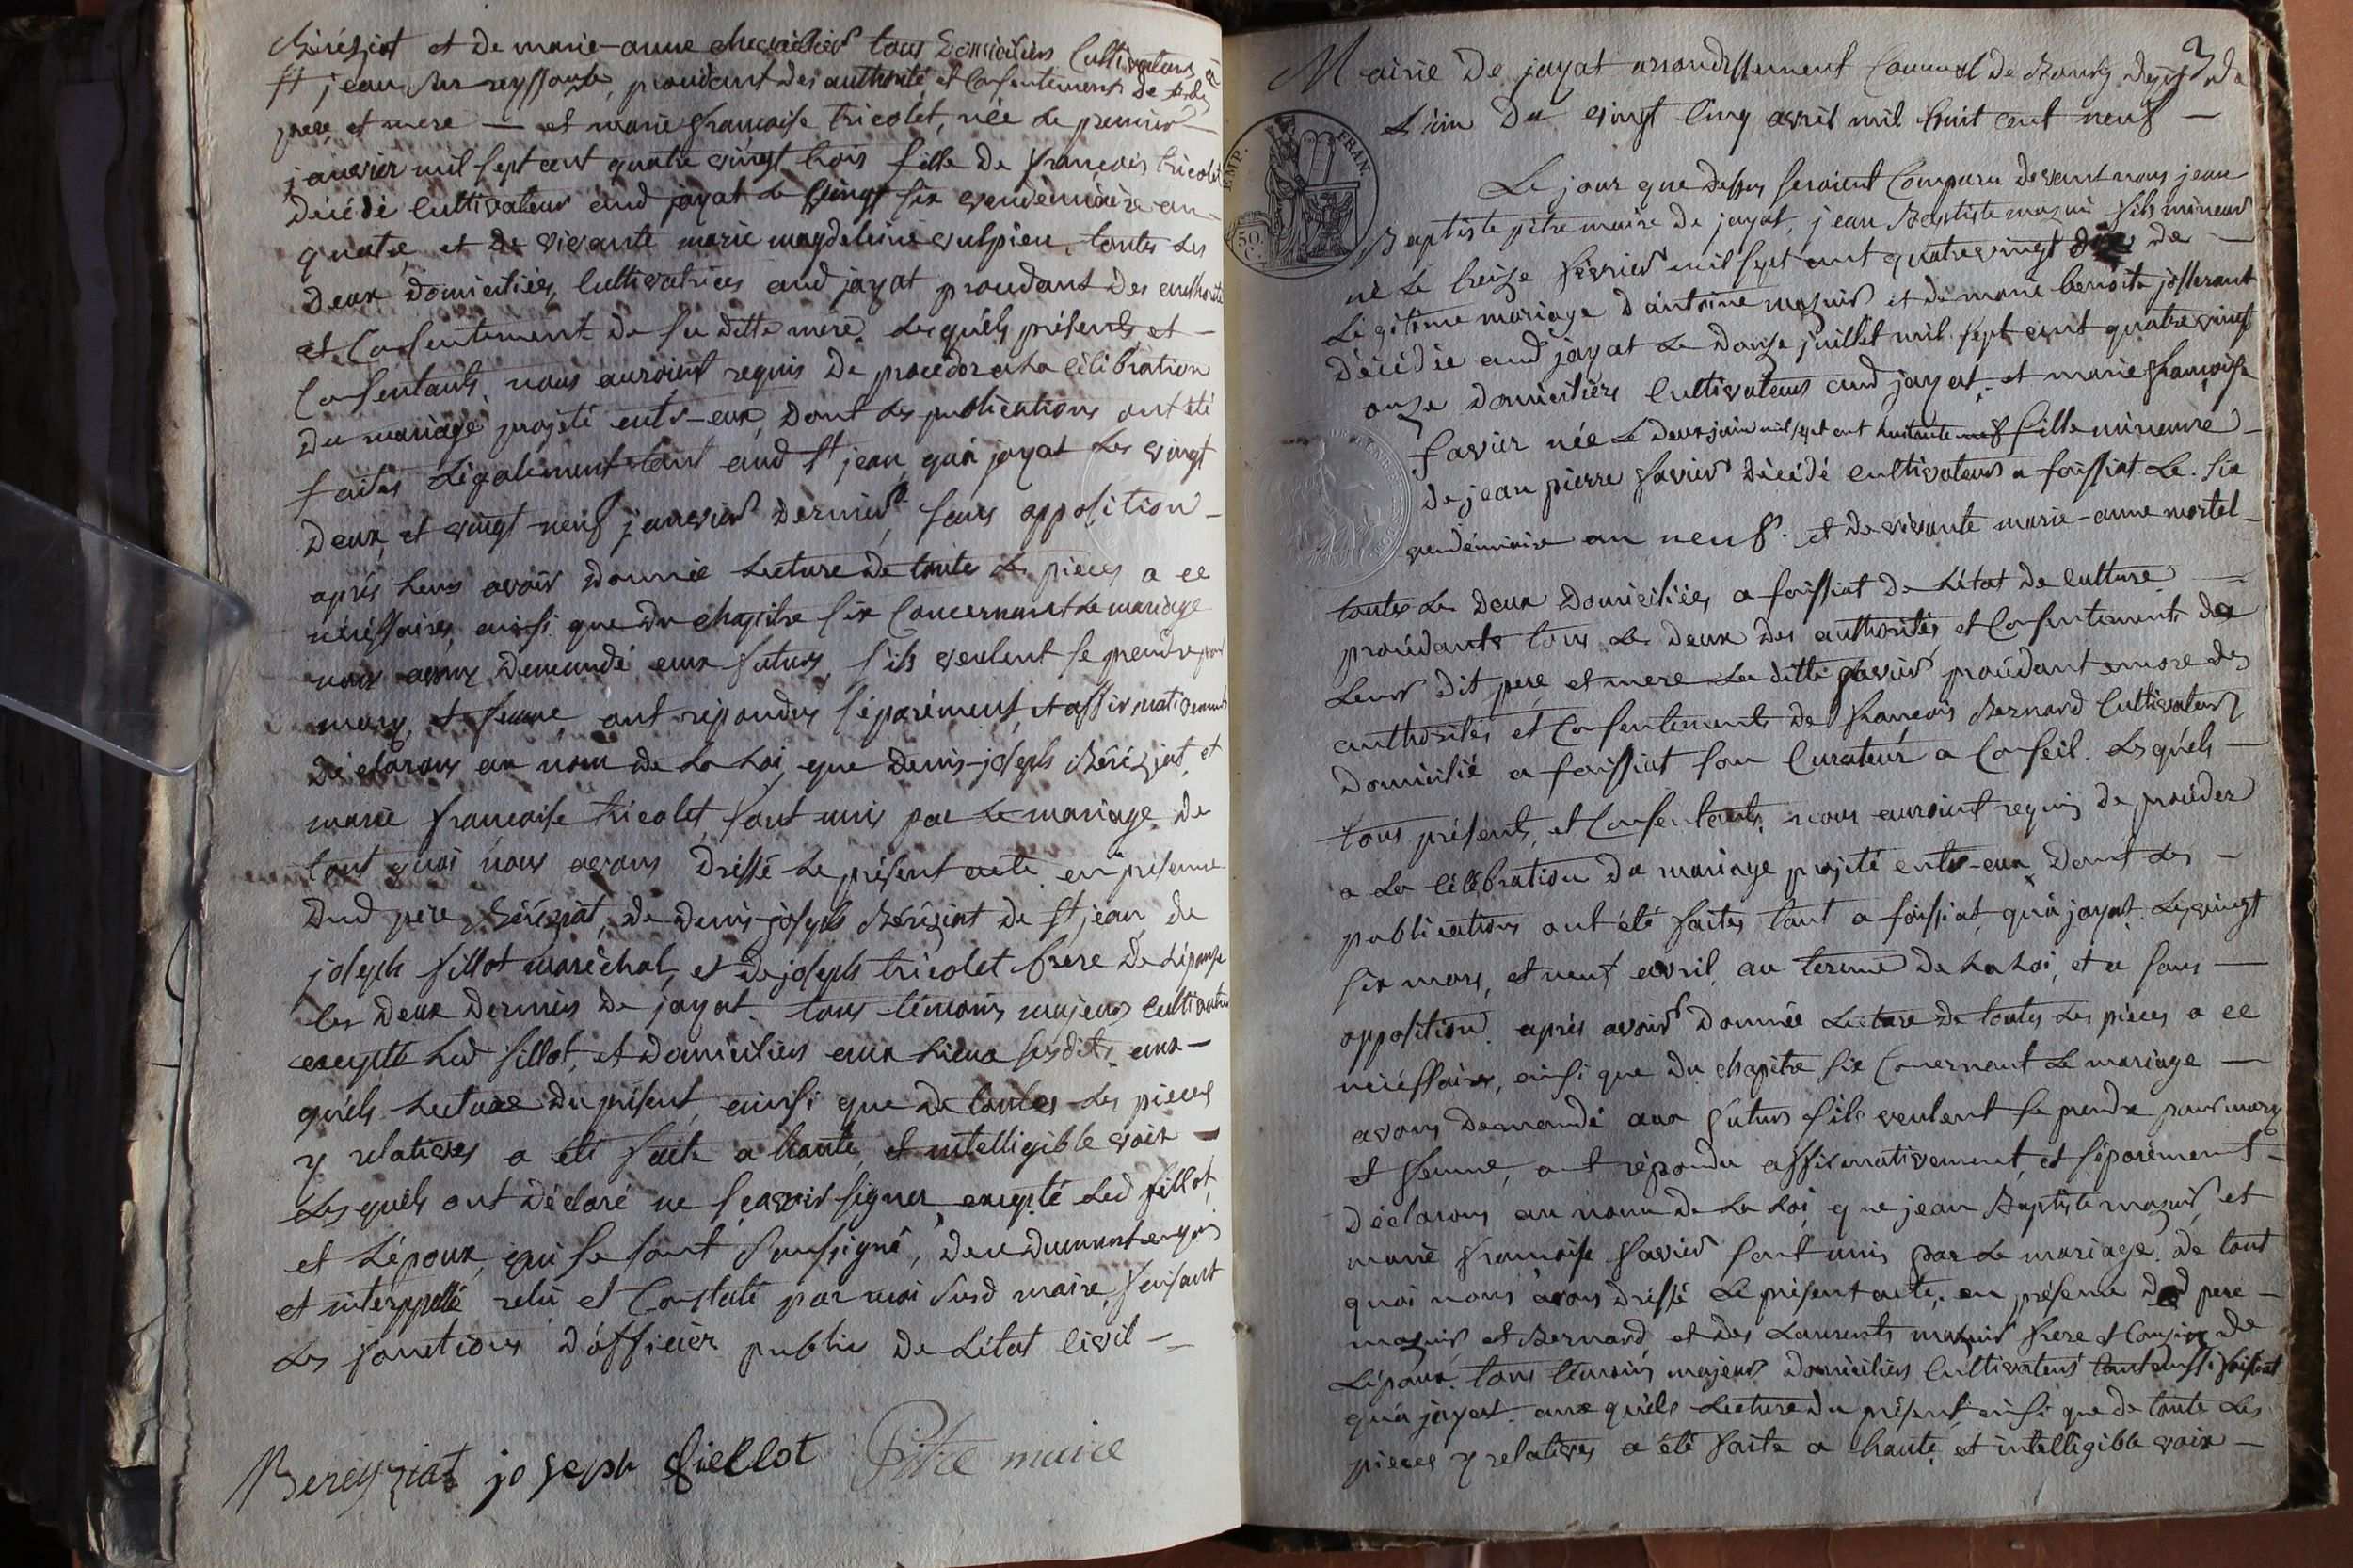 Béréziat et de marie-anne chevalier tous domiciliers Cultivateurs à
St jean sur reyssouse, procédant des authorité et Consentement de
pere et mere — et marie françoise tricolet, née le premier
janvier mil sept cent quatre vingt trois fille de françois tricolet
décédé Cultivateur aud jayat le vingt six vendémiaire an
quatre et de vivante marie magdeleine vulpien, toutes les
deux domiciliées, Cultivatrices aud jayat procedant des authorité
et Consentement de sa ditte mere. Lesquels présents et
Consentants, nous auroient requis de procéder a la célébration
du mariage projeté entr-eux, dont les publications ont été
faites légalement tant aud St jean qu'à jayat les vingt
deux, et vingt-neuf janvier dernier, sans opposition
après leur avoir donnée Lecture de toute les pieces a ce
nécéssaires, ainsi que du chapitre six Concernant le mariage
nous avons demandé aux futurs, s'ils veulent se prendre pour
mary et femme, ont répondus séparément et affirmativement
déclarons au nom de la Loi, que denis-joseph Béréziat, et
marie françoise tricolet, sont unis par le mariage. de
tout quoi nous avons dréssé le présent acte en présence
dud pere Béréziat, de denis-joseph Béréziat de St jean, de
joseph fillot maréchal, et de joseph tricolet frere de l'épouse
les deux derniers de jayat. tous témoins majeurs Cultivateurs
excepté led fillot, et domiciliers aux Lieux susdits aux-
quels Lecture du présent, ainsi que de toutes les pieces
y relatives a été faite a haute et intelligible voix —
Lesquels ont déclaré ne sçavoir signer excepté led fillot,
et L'époux, qui se sont soussigné, de ce dument enquis
et interppellé relu et Constaté par moi susd maire, faisant
les fonctions d'officier public de L'état Civil —
Bereyziat joseph fiellot Pitre maire
3
Mairie de jayat arrondissement Communal de Bourg dept de
L'ain du vingt Cinq avril mil huit cent neuf —
EMP. FRAN.
50. C.
Le jour que dessus seroient Comparu devant nous jean
Baptiste pitre maire de jayat, jean Baptiste mazuir fils mineur
né le treize février mil sept cent quatre vingt de —
Légitime mariage d'antoine mazuir et de marie benoite josserant
décédée aud jayat le douze juillet mil sept cent quatre vingt
onze domiciliers Cultivateurs aud jayat, et marie françoise
favier née le deux juin mil sept cent huitante neuf fille mineure
de jean pierre favier décédé Cultivateur a foissiat le six
vendémiaire an neuf. et de vivante marie-anne mortel
toutes les deux domiciliées, a foissiat de L'état de Culture
procédants tous les deux des authorités et Consentements de
Leur dit pere et mere la ditte favier procédant encore des
authorités et Consentements de françois Bernard Cultivateur
domicilié a foissiat son Curateur a Conseil. Lesquels —
tous présents, et Consentants, nous auroient requis de procéder
a la Célébration du mariage projeté entr-eux dont les —
publications ont été faites tant a foissiat, qu'à jayat les vingt
six mars, et neuf avril, au terme de la Loi, et a sans —
opposition. après avoir donnée Lecture de toutes les pieces a ce
nécéssaires, ainsi que du chapitre six Concernant le mariage —
avons demandé aux futurs s'ils veulent se prendre pour mary
et femme, ont répondu affirmativement, et séparément —
déclarons au nom de la Loi que jean Baptiste mazuir, et
marie françoise favier sont unis par le mariage. de tout
quoi nous avons dréssé le présent acte. en présence dud pere —
mazuir et Bernard et des Laurents mazuir frere et Cousin de
L'époux. tous témoins majeurs domiciliers Cultivateurs tant aussi foissiat
qu'à jayat. auxquels Lecture du présent ainsi que de toute les
pieces y relatives a été faite a haute, et intelligible voix —